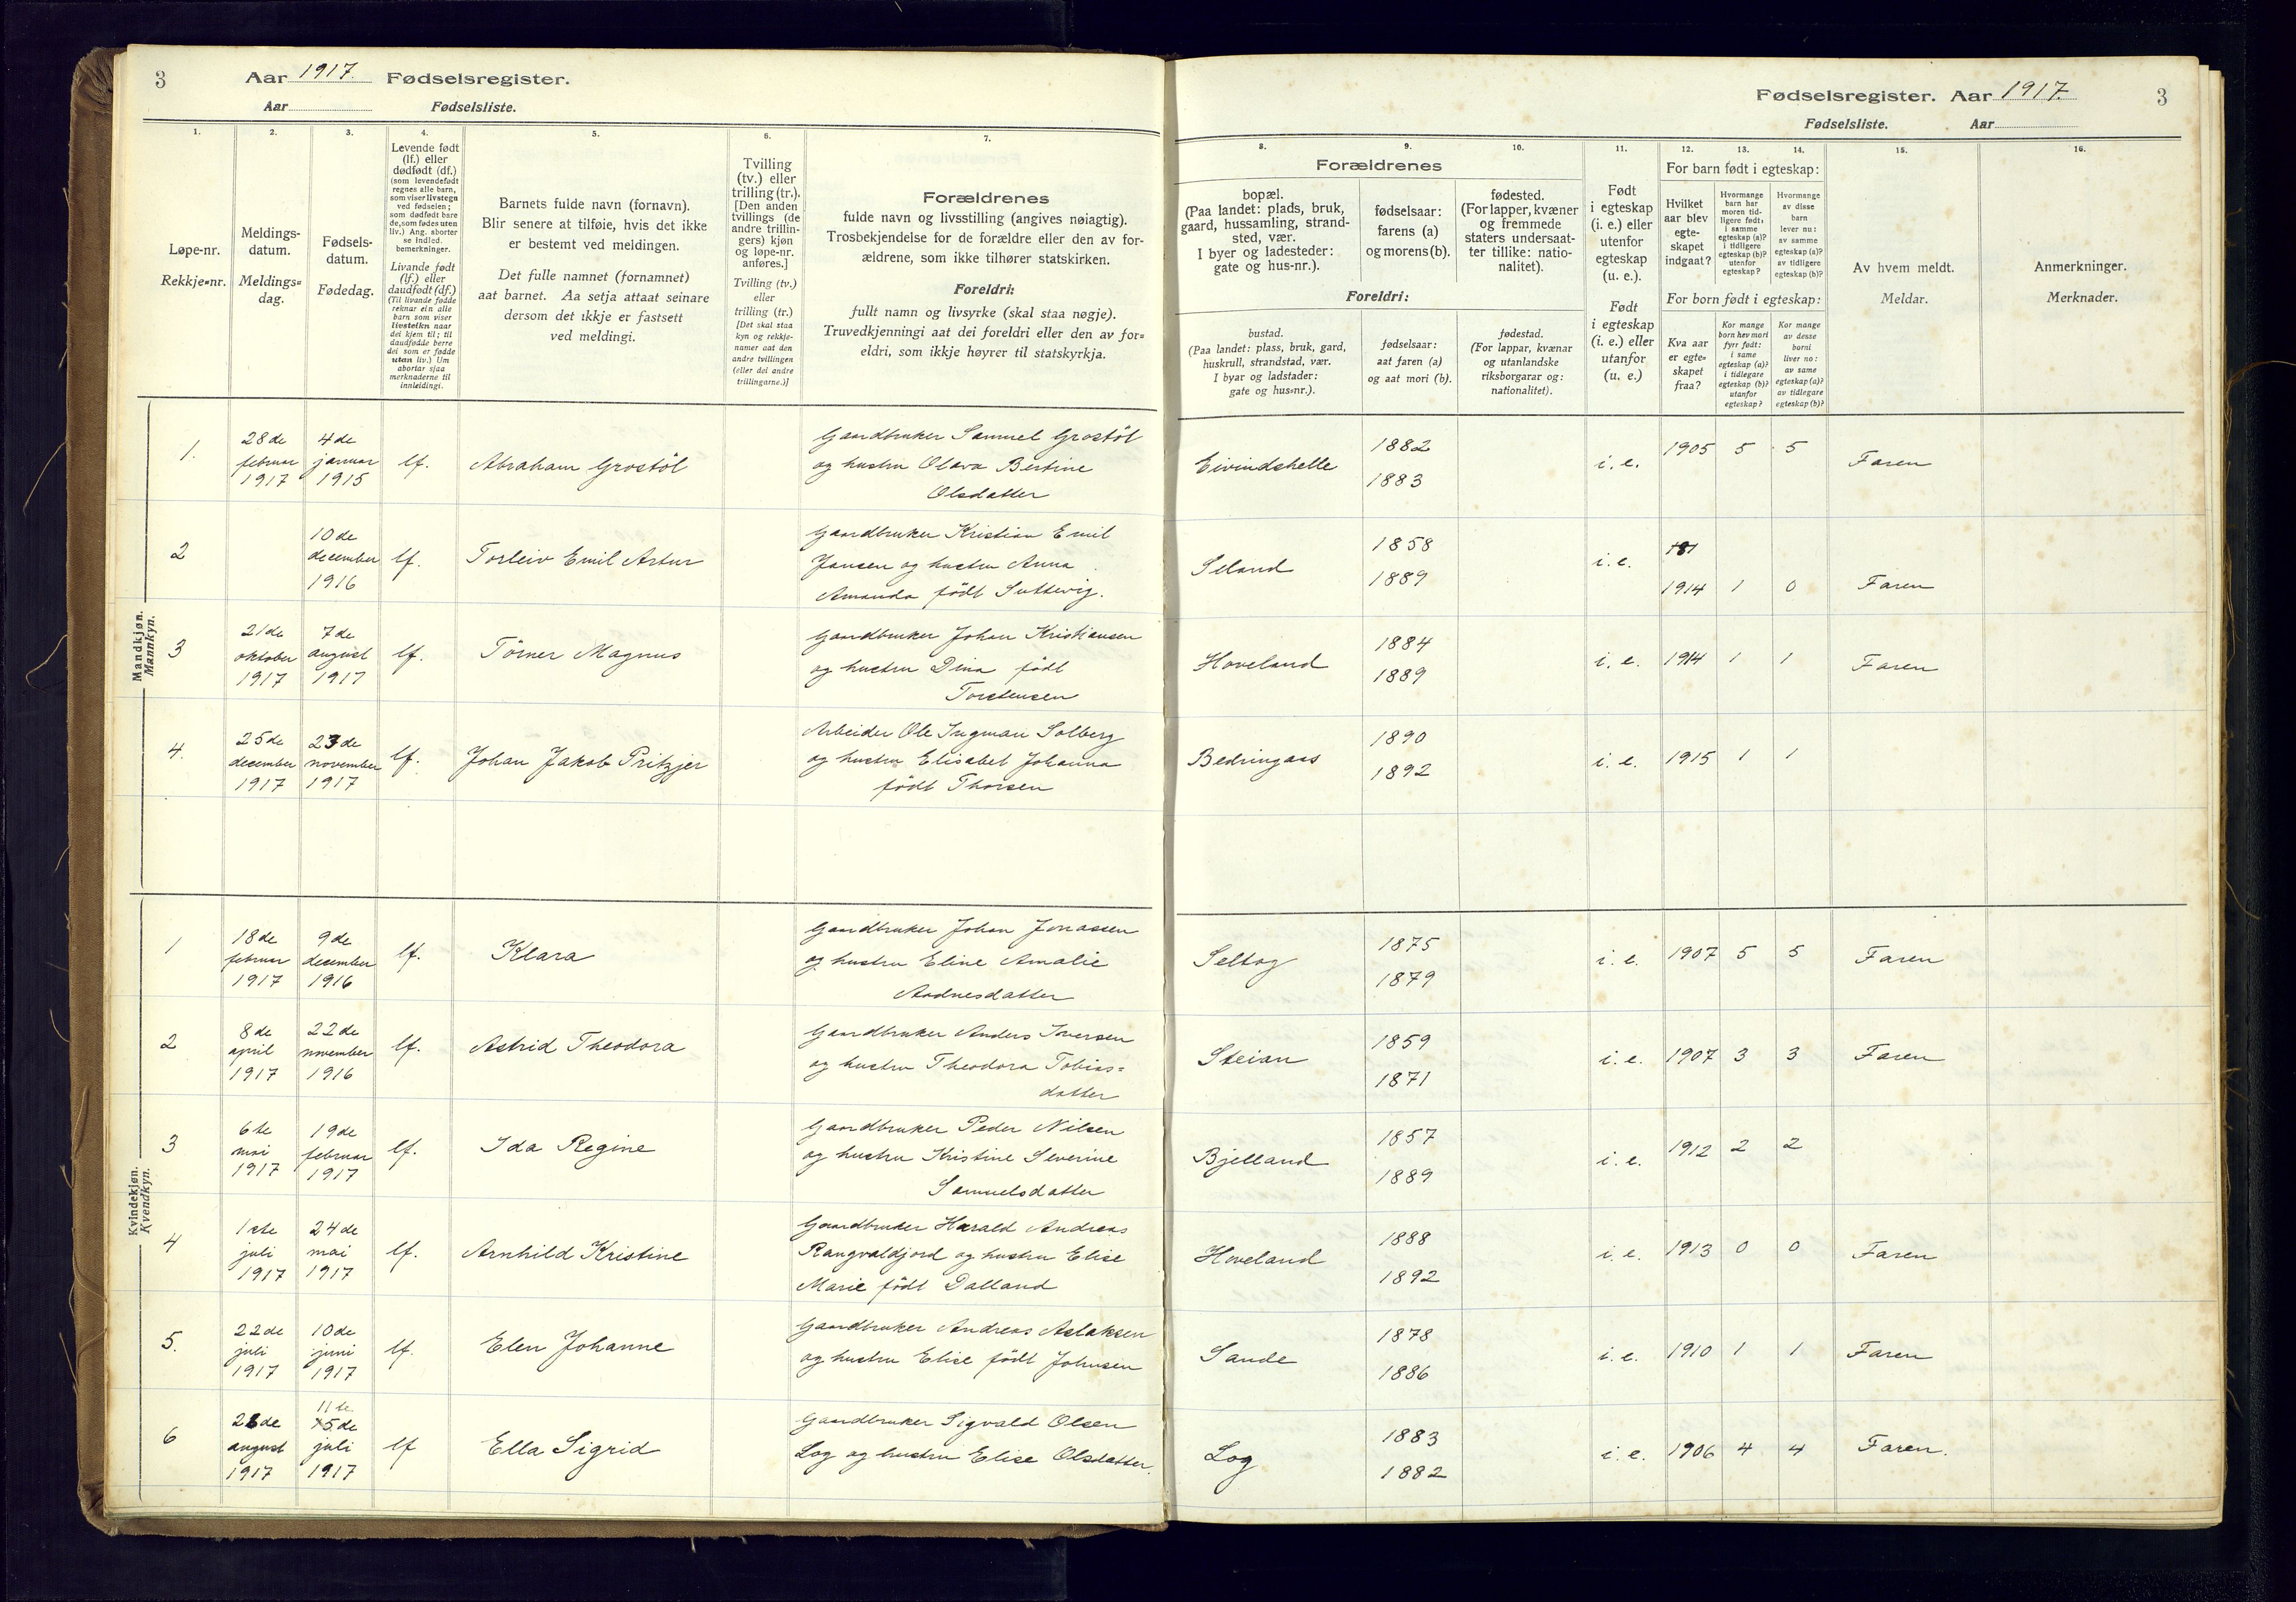 3 Aar 1917. Fødselsregister.
Aar Fødselsliste.
Fødselsregister. Aar 1917. 3
Fødselsliste. Aar
1.
Løpe-nr.
Rekkje-nr.
2.
Meldings-
datum.
Meldings-
dag.
3.
Fødsels-
datum.
Fødedag.
4.
Levende født
(lf.) eller
dødfødt (df.)
(som levendefødt
regnes alle barn,
som viser livstegn
ved fødselen;
som dødfødt bare
de, som fødes uten
liv.) Ang. aborter
se indled.
bemerkninger.
Livande født
(lf.) eller
daudfødt (df.)
(Til livande fødde
reknar ein alle
barn som viser
livsteikn naar
dei kjem til; til
daudfødde berre
dei som er fødde
utan liv.) Um
abortar sjaa
merknaderne til
innleidingi.
5.
Barnets fulde navn (fornavn).
Blir senere at tilføie, hvis det ikke
er bestemt ved meldingen.
Det fulle namnet (fornamnet)
aat barnet. Aa setja attaat seinare
dersom det ikkje er fastsett
ved meldingi.
6.
Tvilling
(tv.) eller
trilling (tr.).
[Den anden
tvillings (de
andre trillin-
gers) kjøn
og løpe-nr.
anføres.]
Tvilling (tv.)
eller
trilling (tr.)
[Det skal staa
kyn og rekkje-
namer aat den
andre tvillingen
(eller dei andre
trillingarne.)]
7.
Forældrenes
fulde navn og livsstilling (angives nøiagtig).
Trosbekjendelse for de forældre eller den av for-
ældrene, som ikke tilhører statskirken.
Foreldri:
fullt namn og livsyrke (skal staa nøgje).
Truvedkjenningi aat dei foreldri eller den av for-
eldri, som ikkje høyrer til statskyrkja.
8.
9.
10.
Forældrenes
bopæl.
(Paa landet: plads, bruk,
gaard, hussamling, strand-
sted, vær.
I byer og ladesteder:
gate og hus-nr.).
fødselsaar:
farens (a)
og morens (b).
fødested.
(For lapper, kvæner
og fremmede
staters undersaat-
ter tillike: natio-
nalitet).
Foreldri:
bustad.
(Paa landet: plass, bruk, gard,
huskrull, strandstad, vær.
I byar og ladstader:
gate og hus-nr.).
fødselsaar:
aat faren (a)
og aat mori (b).
fødestad.
(For lappar, kvænar
og utanlandske
riksborgarar og:
nationalitet).
11.
Født
i egteskap
(i. e.) eller
utenfor
egteskap
(u. e.).
Født
i egteskap
(i. e.) eller
utanfor
(u. e.)
12.
13.
14.
For barn født i egteskap:
Hvilket
aar blev
egte-
skapet
indgaat?
Hvormange
barn har
moren tid-
ligere født:
i samme
egteskap (a)?
i tidligere
egteskap (b)?
utenfor
egteskap?
Hvormange
av disse
barn
lever nu:
av samme
egteskap (a)?
av tidligere
egteskap (b)?
For born født i egteskap:
Kva aar
er egte-
skapet
fraa?
Kor mange
born hev mori
fyrr født:
i same
egteskap (a)?
i tidlegare
egteskap (b)?
utanfor
egteskap?
Kor mange
av desse
borni
liver no:
av same
egteskap (a)?
av tidlegare
egteskap (b)?
15.
Av hvem meldt.
Meldar.
16.
Anmerkninger.
Merknader.
Mandkjøn.
Mannkyn.
1. 28de februar 1917 4de januar 1915 lf. Abraham Grostöl
Gaardbruker Samuel Grostöl
og hustru Olava Bertine
Olsdatter
Eivindshelle 1882 1883 i. e. 1905 5 5 Faren
2 10de december 1916 lf. Torleiv Emil Artur
Gaardbruker Kristian Emil
Jansen og hustru Anna
Amanda født Suttevig.
Seland 1858 1889 i. e. 1914 1 0 Faren
3 21de oktober 1917 7de august 1917 lf. Törner Magnus
Gaardbruker Johan Kristiansen
og hustru Dina født
Torstensen
Hoveland 1884 1889 i. e. 1914 1 1 Faren
4. 25de december 1917 23de november 1917 lf. Johan Jakob Pritzjer
Arbeider Ole Ingman Solberg
og hustru Elisabet Johanna
født Thorsen
Bedringaas 1890 1892 i. e. 1915 1 1
Kvindekjøn.
Kvendkyn.
1 18de februar 1917 9de december 1916 lf. Klara
Gaardbruker Johan Jonassen
og hustru Eline Amalie
Aadnesdatter
Seltog 1875 1879 i. e. 1907 5 5 Faren
2 8de april 1917 22de november 1916 lf. Astrid Theodora
Gaardbruker Anders Iversen
og hustru Theodora Tobias=
datter
Steian 1859 1871 i. e. 1907 3 3 Faren
3 6te mai 1917 19de februar 1917 lf. Ida Regine
Gaardbruker Peder Nilsen
og hustru Kristine Severine
Samuelsdatter
Bjelland 1857 1889 i. e. 1912 2 2
4 1ste juli 1917 24de mai 1917 lf. Arnhild Kristine
Gaardbruker Harald Andreas
Rangvaldjord og hustru Elise
Marie født Dalland
Hoveland 1888 1892 i. e. 1913 0 0 Faren
5. 22de juli 1917 10de juni 1917 lf. Elen Johanne
Gaardbruker Andreas Aslaksen
og hustru Elise født Johnsen
Sande 1878 1886 i. e. 1910 1 1 Faren
6 26de august 1917 11te 15de juli 1917 lf Ella Sigrid
Gaardbruker Sigvald Olsen
Log og hustru Elise Olsdatter.
Log 1883 1882 i. e. 1906 4 4 Faren.